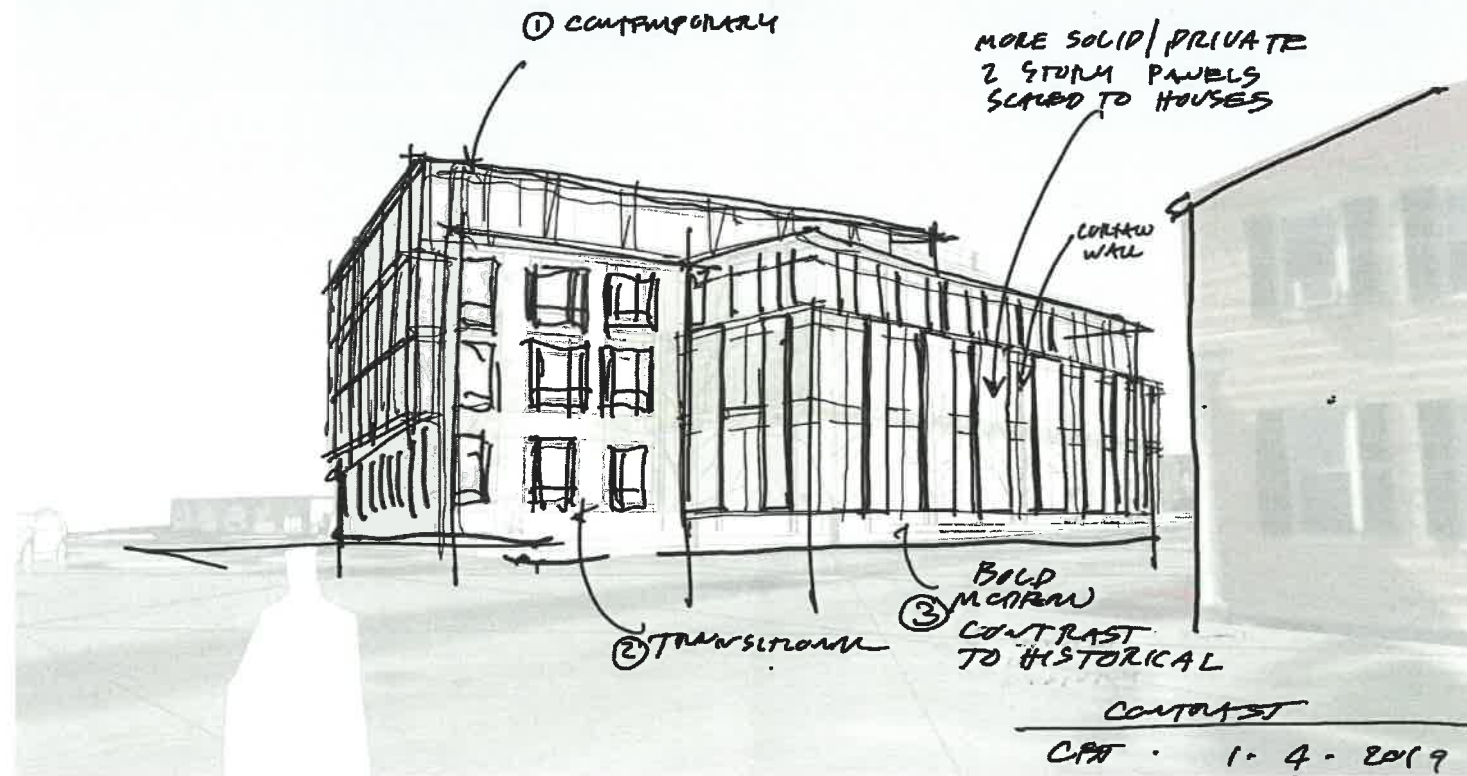 ① CONTEMPORARY
MORE SOLID/PRIVATE
2 STORY PANELS
SCALED TO HOUSES
CURTAIN
WALL
② TRANSITIONAL
③ BOLD
MODERN
CONTRAST
TO HISTORICAL
CONTRAST
1 - 4 - 2019